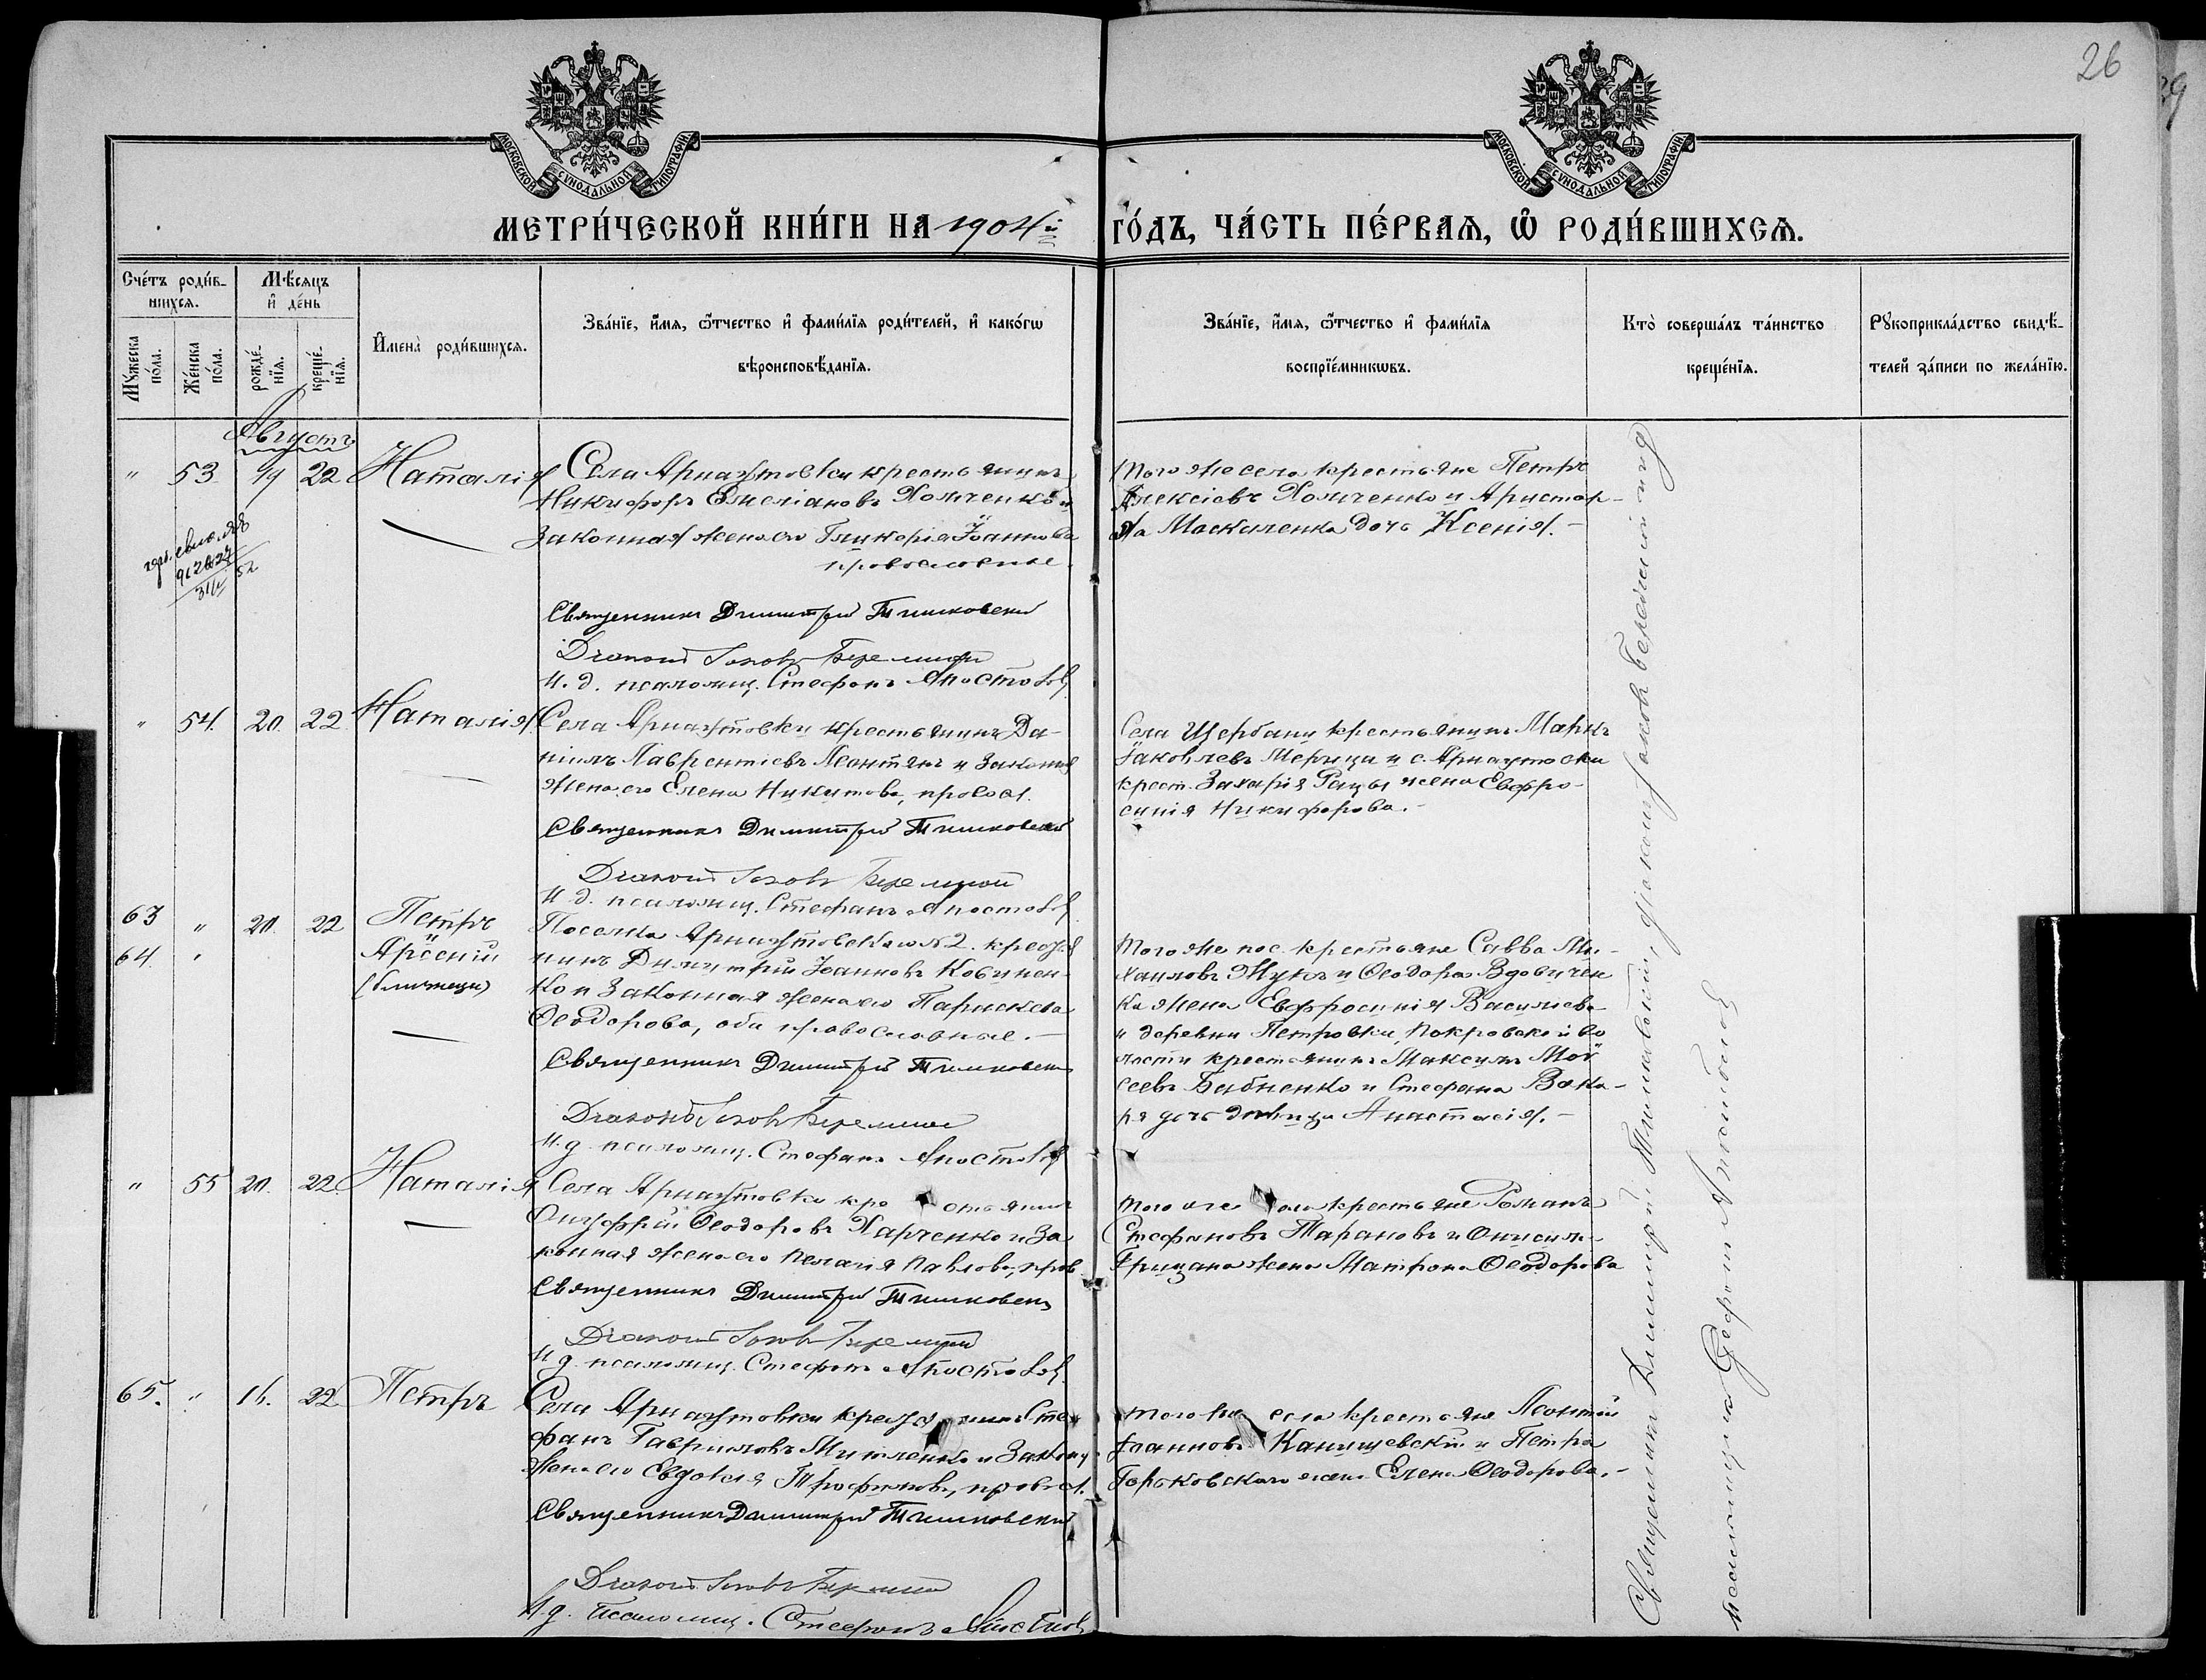 26
МОСКОВСКОЙ СѴНОДАЛЬНОЙ ТИПОГРАФІИ
МОСКОВСКОЙ СѴНОДАЛЬНОЙ ТИПОГРАФІИ
МЕТРИ́ЧЕСКОЙ КНИ́ГИ НА 1904й ГО́ДЪ, ЧА́СТЬ ПЕ́РВАѦ, Ѡ РОДИ́ВШИХСѦ.
Сче́тъ роди́в-
шихсѧ.
Мꙋ́жеска по́ла.
Же́нска по́ла.
Мѣ́сяцъ
и де́нь
рожде́-
нїѧ.
креще́-
нїѧ.
Имена̀ роди́вшихсѧ.
Зва́нїе, и́мѧ, ѻ́тчество и фами́лїѧ роди́телей, и како́гѡ
вѣроисповѣ́данїѧ.
Зва́нїе, и́мѧ, ѻ́тчество и фами́лїѧ
воспрїе́мникѡвъ.
Кто̀ соверша́лъ та́инство
креще́нїѧ.
Рꙋкоприкла́дство свидѣ́-
телей за́писи по жела́нїю.
Августъ
" 53 19 22 Наталія
Села Арнаутовки крестьянинъ
Никифоръ Емеліановъ Холиченко и
законная жена его Гликерія Іоаннова
православные.
Священникъ Димитрій Тишковскій
Діаконъ Іаковъ
И. д. псаломщ. Стефанъ Апостоловъ
Того же села крестьяне Петръ
Алексіевъ Холиченко и Аристар-
ха Маскаленка дочь Ксенія.-
" 54. 20. 22 Наталія
Села Арнаутовки крестьянинъ Да-
ніилъ Лаврентіевъ Леонтянъ и законная
жена его Елена Никитова, правосл.
Священникъ Димитрій Тишковскій
Діаконъ Іаковъ
И. д. псаломщ. Стефанъ Апостоловъ
Села Щербани крестьянинъ Маркъ
Іаковлевъ Мерица и с. Арнаутовки
крест. Захарія Рацы жена Евфро-
синія Никифорова.-
63 " 20. 22 Петръ
64. " Арсеній
(близнецы)
Поселка Арнаутовскаго №2. крестья
нинъ Димитрій Іоанновъ
ко и законная жена его Параскева
Ѳеодорова, оба православные.-
Священникъ Димитрій Тишковскій
Діаконъ Іаковъ
И. д. псаломщ. Стефанъ Апостоловъ
Того же пос. крестьяне Савва Ми-
хаиловъ Жукъ и Ѳеодора Вдовичен
ка жена Евфросинія Василіева
и деревни Петровки, Покровской во
лости крестьянинъ Максимъ Мої
сеевъ Бабненко и Стефана Вака-
ря дочь дѣвица Анастасія.-
" 55 20. 22. Наталія
Села Арнаутовки крестьянинъ
Онуфрій Ѳеодоровъ Харченко и за
конная жена его Пелагія Павлова, прав.
Священникъ Димитрій Тишковскій
Діаконъ Іаковъ
И. д. псаломщ. Стефанъ Апостоловъ
Того же села крестьяне Романъ
Стефановъ Тарановъ и Онисима
Грицана жена Матрона Ѳеодорова
65. " 16. 22 Петръ
Села Арнаутовки крестьянинъ Сте
фанъ Гавриловъ и законная
жена его Евдокія Трофимова, правосл.
Священникъ Димитрій Тишковскій
Діаконъ Іаковъ
И. д. псаломщ. Стефанъ Апостоловъ
Того же села крестьяне Леонтій
Іоанновъ Канищевскій и Петра
Горьковскаго жена Елена Ѳеодорова.-
Священникъ Димитрій Тишковскій, діаконъ Іаковъ и и. д.
псаломщика Стефанъ Апостоловъ